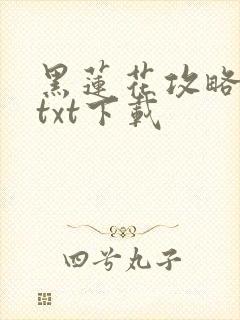 黑蓮花攻略
txt下載
四号丸子